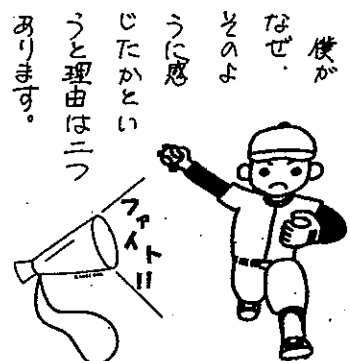 僕が
なぜ、
そのよ
うに感
じたかとい
うと理由は二つ
あります。
ファイト!!